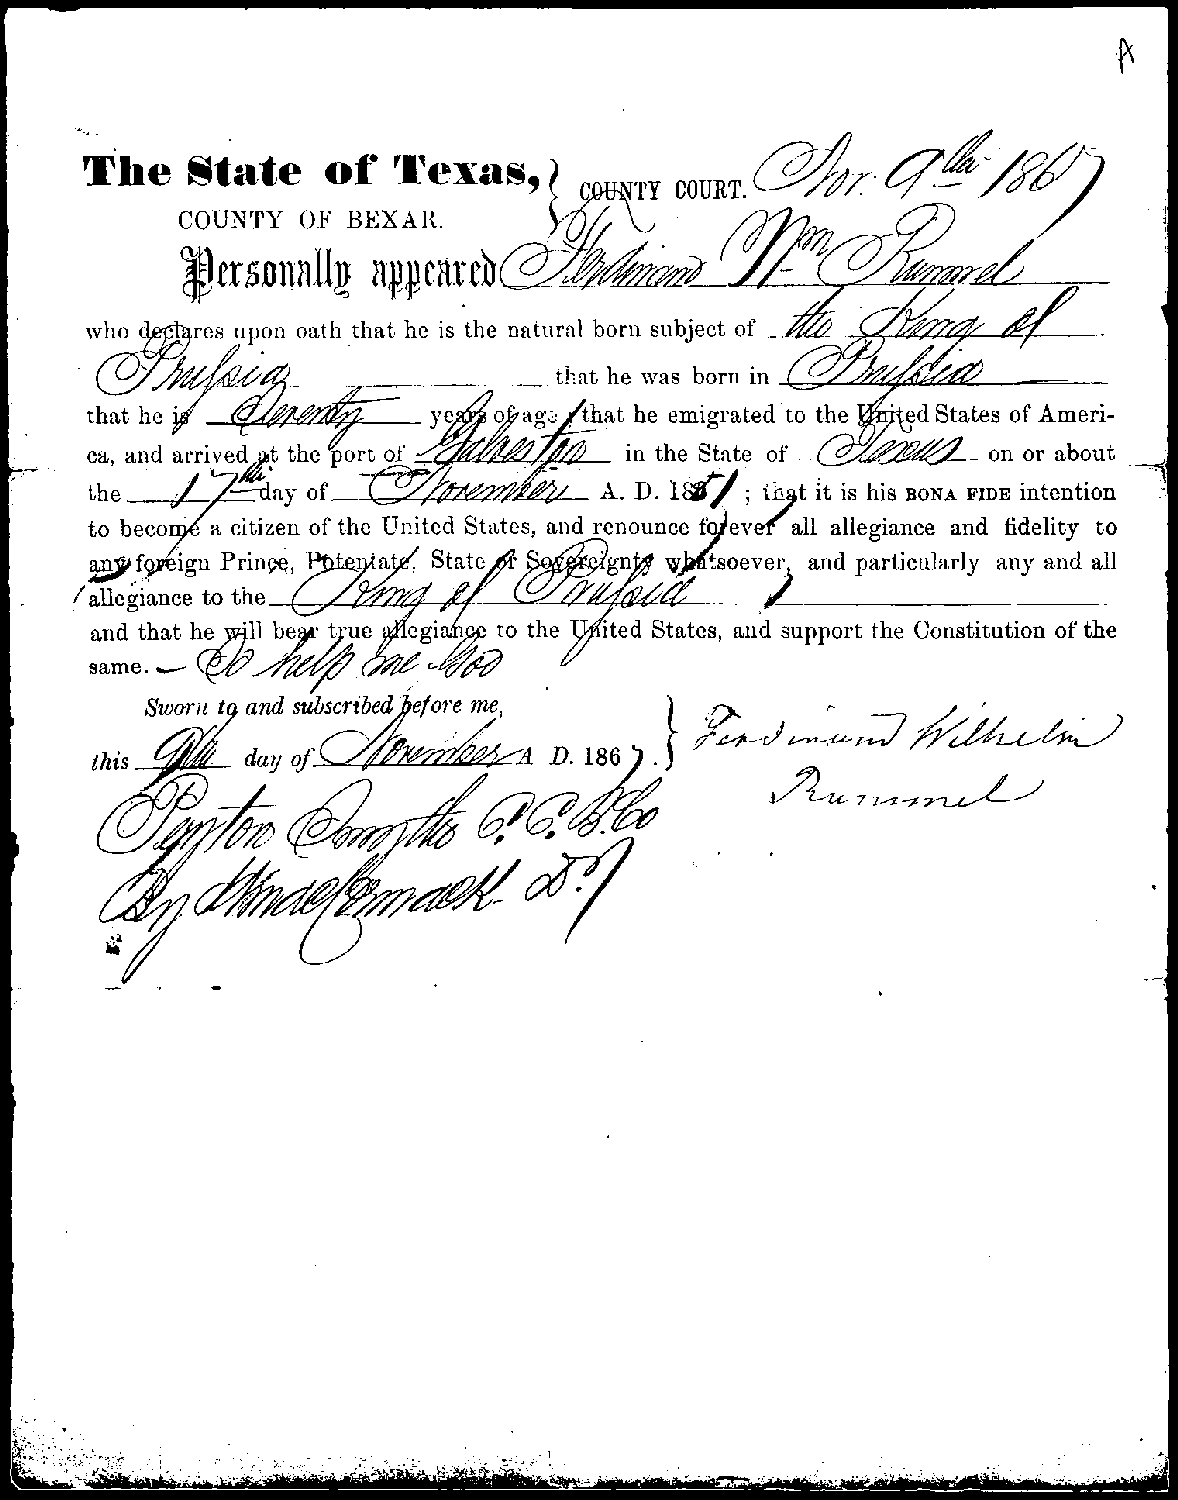 A
The State of Texas, } COUNTY COURT. Nov. 9th 1867
COUNTY OF BEXAR.
Personally appeared Ferdinand Wm Rummel
who declares upon oath that he is the natural born subject of the King of
Prussia that he was born in Prussia
that he is Seventy years of age, that he emigrated to the United States of Ameri-
ca, and arrived at the port of Galveston in the State of Texas on or about
the 17th day of November A. D. 1851 ; that it is his BONA FIDE intention
to become a citizen of the United States, and renounce forever all allegiance and fidelity to
any foreign Prince, Potentate, State or Sovereignty whatsoever, and particularly any and all
allegiance to the King of Prussia
and that he will bear true allegiance to the United States, and support the Constitution of the
same. — So help me God
Sworn to and subscribed before me,
this 9th day of November A D. 1867. } Ferdinand Wilhelm
Rummel
Peyton Smythe C. C. B. Co
By Dy